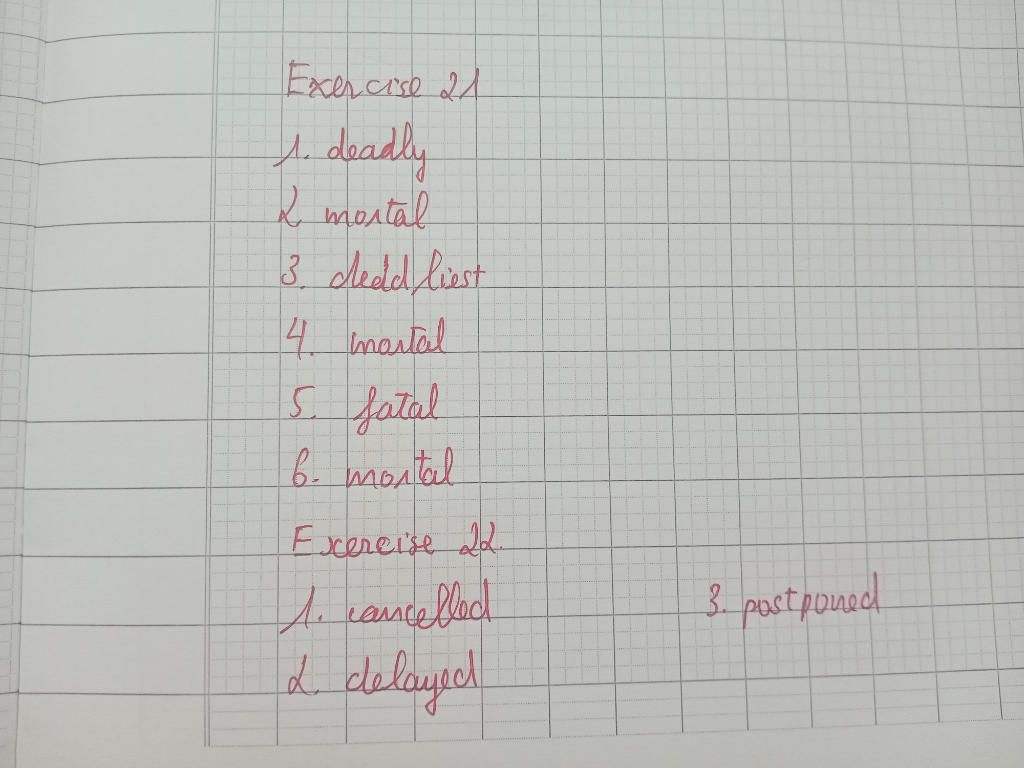 Exercise 21
1. deadly
2 mortal
3. deadliest
4. mortal
5. fatal
6. mortal
Exercise 22.
1. cancelled
3. postponed
2. delayed